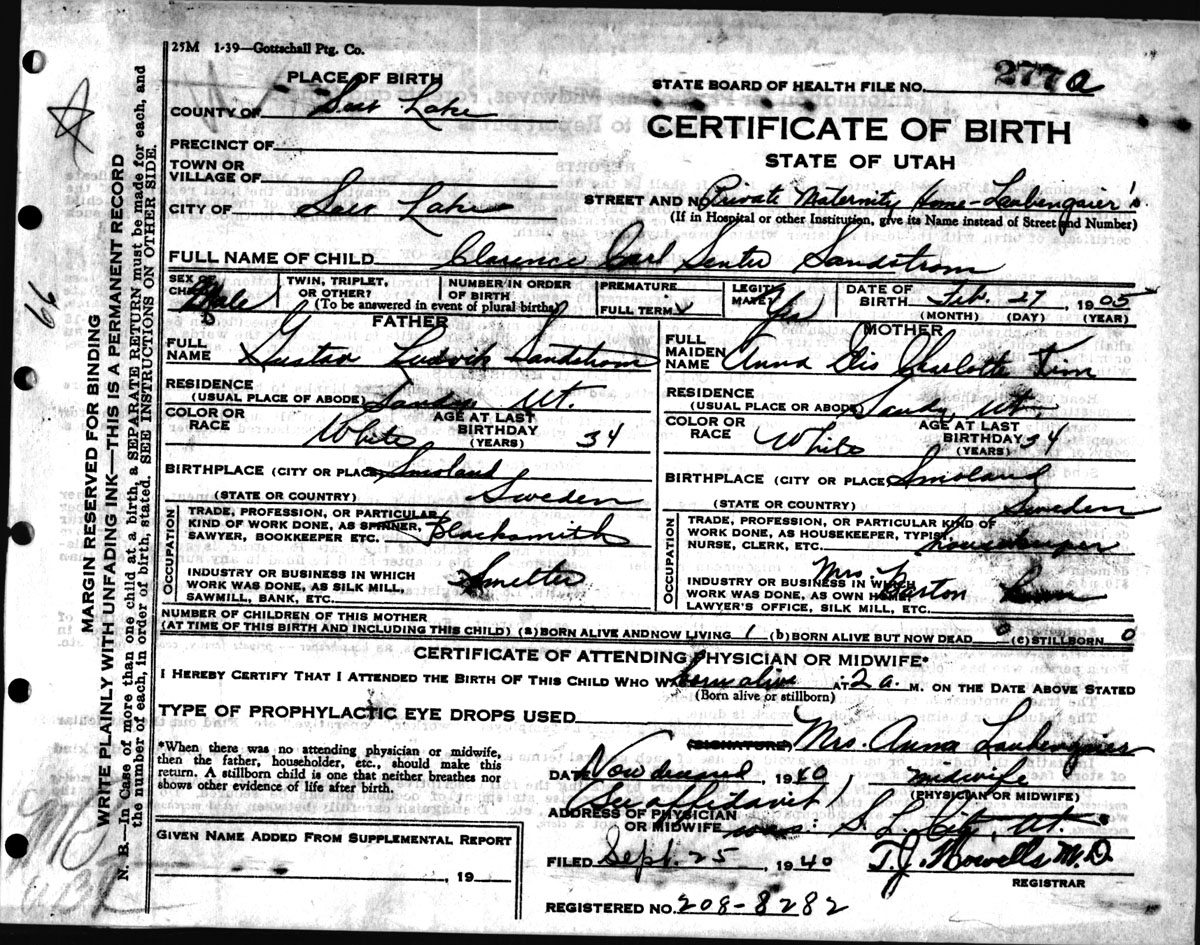 25M 1-39—Gottschall Ptg. Co.
STATE BOARD OF HEALTH FILE NO. 277a
PLACE OF BIRTH
COUNTY OF Salt Lake
PRECINCT OF
TOWN OR
VILLAGE OF
CITY OF Salt Lake
CERTIFICATE OF BIRTH
STATE OF UTAH
STREET AND NO Private Maternity Home-Laubengaier's
(If in Hospital or other Institution, give its Name instead of Street and Number)
FULL NAME OF CHILD Clarence Carl Senter Sandstrom
SEX OF
CHILD Male
TWIN, TRIPLET,
OR OTHER?
NUMBER IN ORDER
OF BIRTH
(To be answered in event of plural births)
PREMATURE
FULL TERM ✓
LEGITI-
MATE? Yes
DATE OF
BIRTH Feb. 27 1905
(MONTH) (DAY) (YEAR)
FATHER
FULL
NAME Gustav Ludvik Sandstrom
RESIDENCE
(USUAL PLACE OF ABODE) Sandy Ut.
COLOR OR
RACE White
AGE AT LAST
BIRTHDAY 34
(YEARS)
BIRTHPLACE (CITY OR PLACE) Smoland
(STATE OR COUNTRY) Sweden
OCCUPATION
TRADE, PROFESSION, OR PARTICULAR
KIND OF WORK DONE, AS SPINNER,
SAWYER, BOOKKEEPER ETC. Blacksmith
INDUSTRY OR BUSINESS IN WHICH
WORK WAS DONE, AS SILK MILL,
SAWMILL, BANK, ETC. Smelter
MOTHER
FULL
MAIDEN
NAME Anna Elis Charlotte Kim
RESIDENCE
(USUAL PLACE OR ABODE) Sandy Ut.
COLOR OR
RACE White
AGE AT LAST
BIRTHDAY 34
(YEARS)
BIRTHPLACE (CITY OR PLACE) Smoland
(STATE OR COUNTRY) Sweden
OCCUPATION
TRADE, PROFESSION, OR PARTICULAR KIND OF
WORK DONE, AS HOUSEKEEPER, TYPIST,
NURSE, CLERK, ETC. housekeeper
INDUSTRY OR BUSINESS IN WHICH Mrs.
WORK WAS DONE, AS OWN HOME, Barton
LAWYER'S OFFICE, SILK MILL, ETC.
NUMBER OF CHILDREN OF THIS MOTHER
(AT TIME OF THIS BIRTH AND INCLUDING THIS CHILD) (a) BORN ALIVE AND NOW LIVING 1 (b) BORN ALIVE BUT NOW DEAD 0 (c) STILLBORN 0
CERTIFICATE OF ATTENDING PHYSICIAN OR MIDWIFE*
I HEREBY CERTIFY THAT I ATTENDED THE BIRTH OF THIS CHILD WHO WAS born alive AT 2 a. M. ON THE DATE ABOVE STATED
(Born alive or stillborn)
TYPE OF PROPHYLACTIC EYE DROPS USED
*When there was no attending physician or midwife,
then the father, householder, etc., should make this
return. A stillborn child is one that neither breathes nor
shows other evidence of life after birth.
(SIGNATURE) Mrs. Anna Laubengaier
DATE Now deceased, 1940 midwife
(PHYSICIAN OR MIDWIFE)
(See affidavit)
ADDRESS OF PHYSICIAN
OR MIDWIFE was: S. L. City, Ut.
GIVEN NAME ADDED FROM SUPPLEMENTAL REPORT
, 19
FILED Sept. 25 1940 T.J. Howells M.D.
REGISTRAR
REGISTERED NO. 208-8282
MARGIN RESERVED FOR BINDING
WRITE PLAINLY WITH UNFADING INK—THIS IS A PERMANENT RECORD
N. B.—In Case of more than one child at a birth, a SEPARATE RETURN must be made for each, and
the number of each, in order of birth, stated. SEE INSTRUCTIONS ON OTHER SIDE.
66